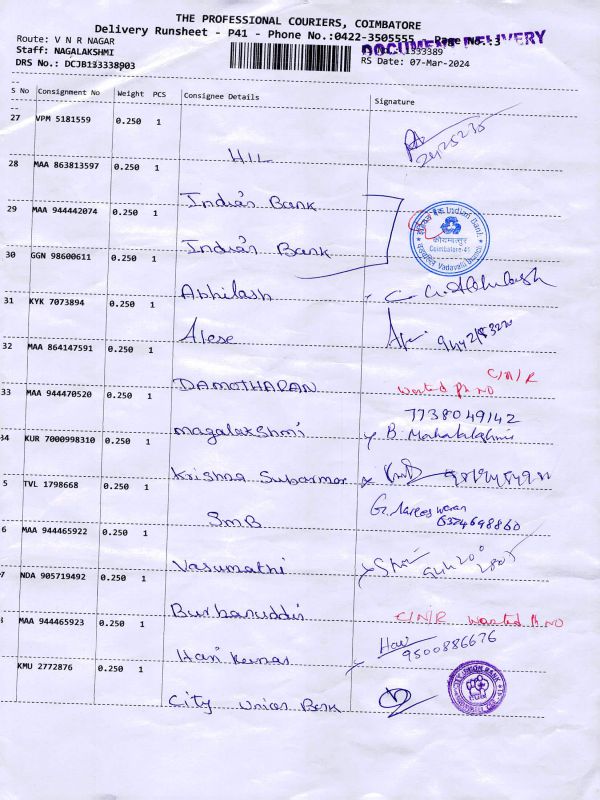 THE PROFESSIONAL COURIERS, COIMBATORE
Delivery Runsheet - P41 - Phone No.:0422-3505555 Page No.:3
DOCUMENT DELIVERY
Route: V N R NAGAR
Staff: NAGALAKSHMI
1333389
DRS No.: DCJB133338903
RS Date: 07-Mar-2024
S No Consignment No Weight PCS Consignee Details Signature
27 VPM 5181559 0.250 1
HIL
28 MAA 863813597 0.250 1
Indian Bank
29 MAA 944442074 0.250 1
Indian Bank
Coimbatore-41
30 GGN 98600611 0.250 1
Abhilash
31 KYK 7073894 0.250 1
32 MAA 864147591 0.250 1
DAMOTHARAN C/N/R
wanted ph no
33 MAA 944470520 0.250 1
7738049142
magalakshmi B. Mahalakshmi
34 KUR 7000998310 0.250 1
Krishna
5 TVL 1798668 0.250 1
SMB
6374698860
6 MAA 944465922 0.250 1
Vasumathi
7 NDA 905719492 0.250 1
Burhanuddin C/N/R wanted ph NO
3 MAA 944465923 0.250 1
Hari Kumar Hari
9500886676
KMU 2772876 0.250 1
City Union Bank